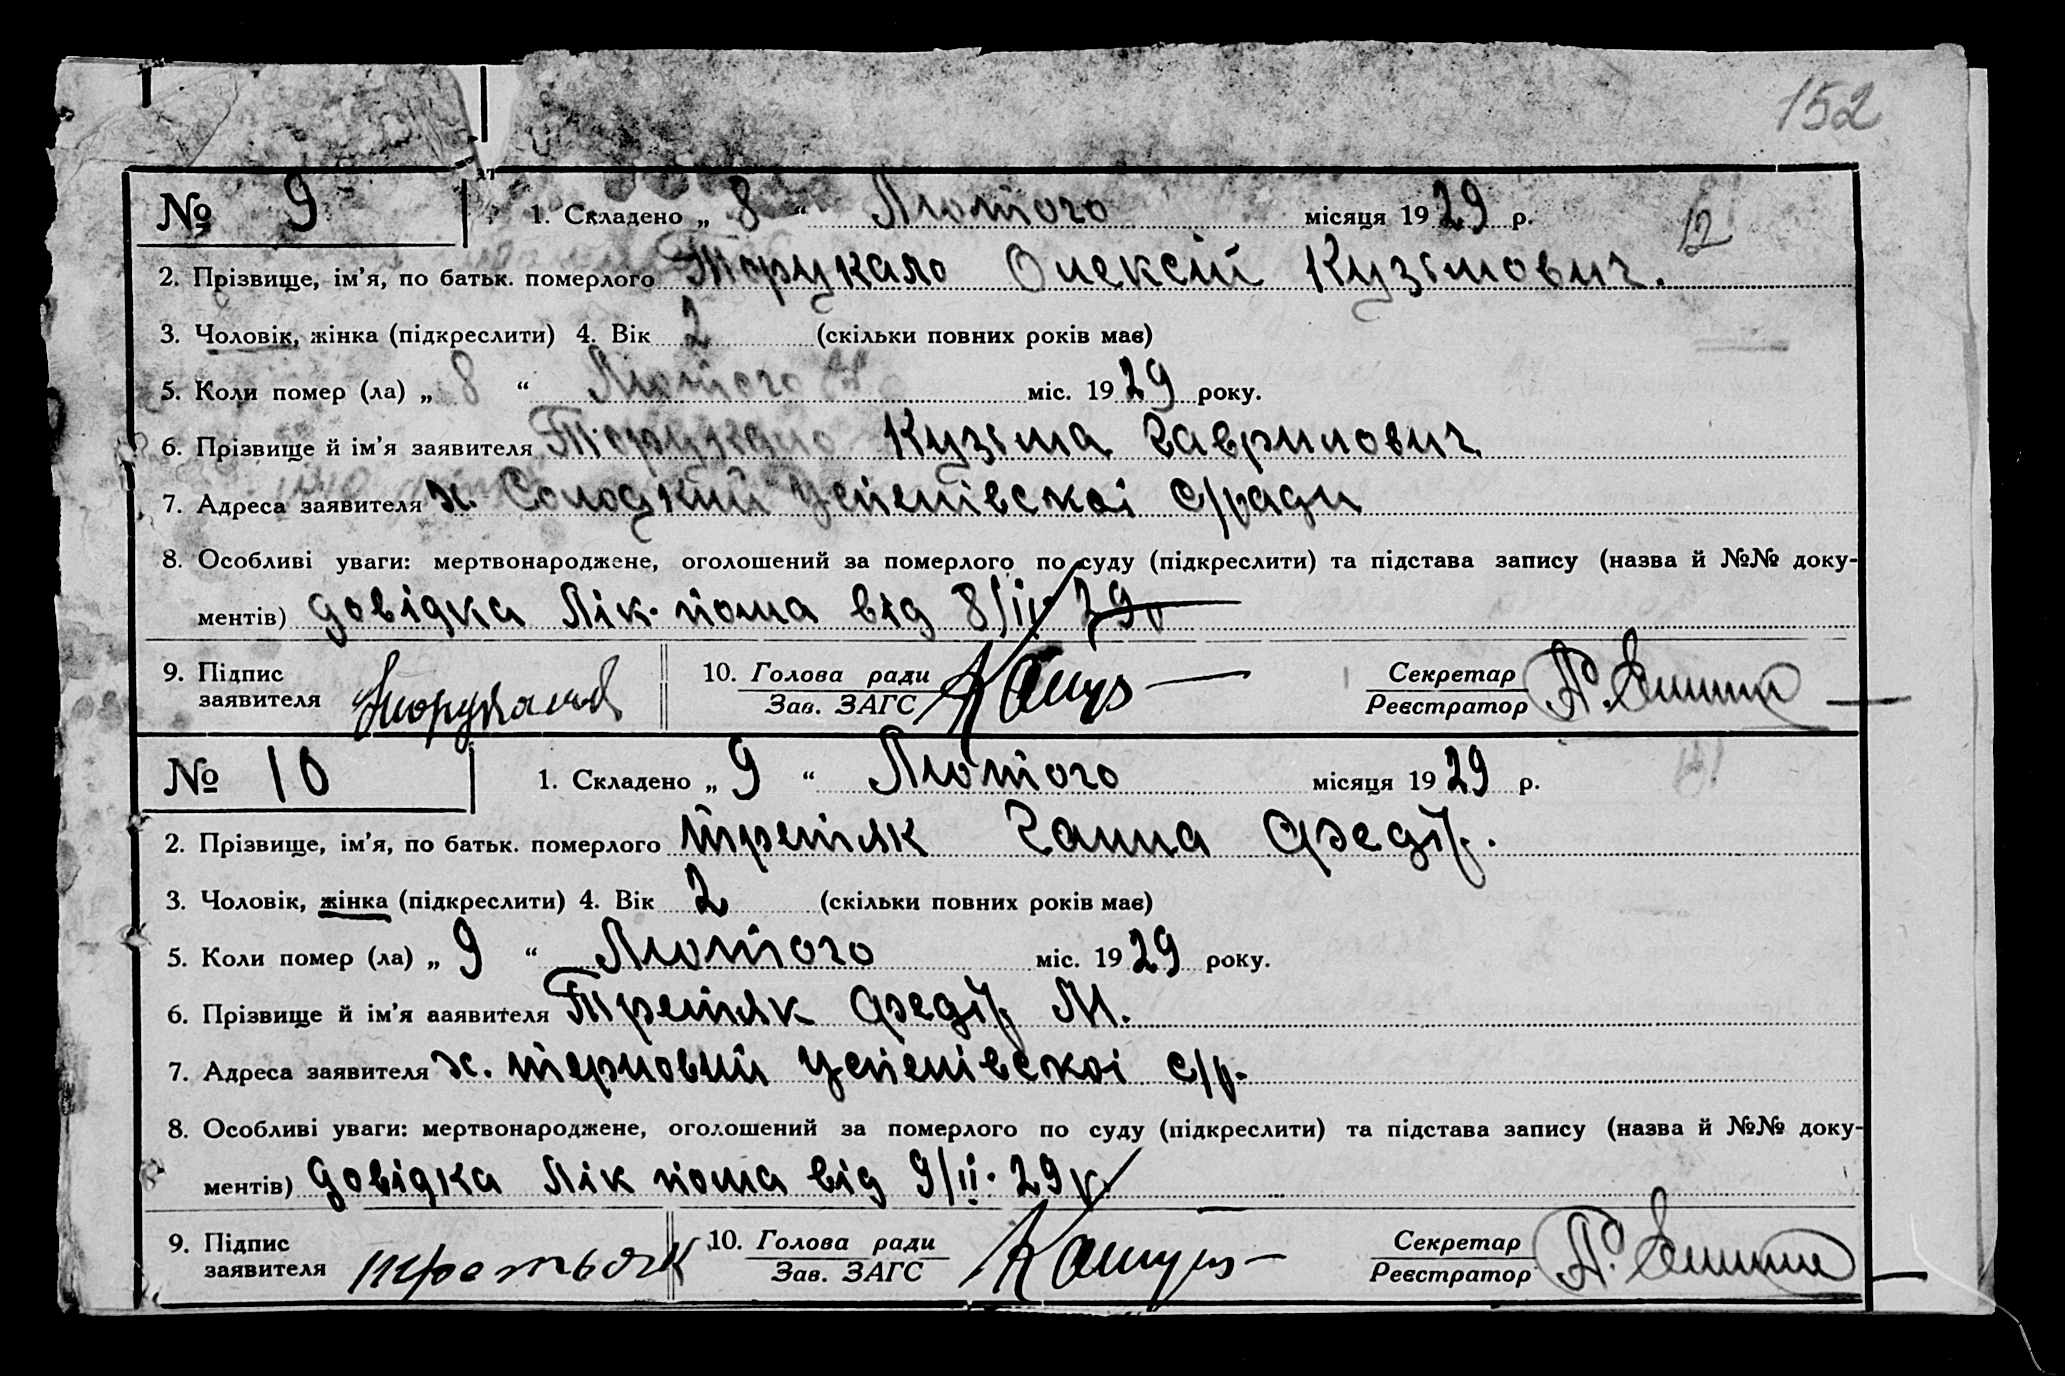 152
№ 9 1. Складено „ 8 “ Лютого місяця 1929 р.
12
2. Прізвище, ім’я, по батьк. померлого Торукало Олексій Кузьмович.
3. Чоловік, жінка (підкреслити) 4. Вік 2 (скільки повних років має)
5. Коли помер (ла) „ 8 “ Лютого міс. 1929 року.
6. Прізвище й ім’я заявителя Торукало Кузьма Гаврилович
7. Адреса заявителя х. Солодкий Успенівскоі с/ради
8. Особливі уваги: мертвонароджене, оголошений за померлого по суду (підкреслити) та підстава запису (назва й №№ доку-
ментів) довідка Лік. пома від 8/II. 29р
9. Підпис заявителя 10. Голова ради Секретар
Зав. ЗАГС Реєстратор
№ 10 1. Складено „ 9 “ Лютого місяця 1929 р.
2. Прізвище, ім’я, по батьк. померлого Третяк Ганна Федір.
3. Чоловік, жінка (підкреслити) 4. Вік 2 (скільки повних років має)
5. Коли помер (ла) „ 9 “ Лютого міс. 1929 року.
6. Прізвище й ім’я заявителя Третяк Федір М.
7. Адреса заявителя х. Терновий Успенівскоі с/р.
8. Особливі уваги: мертвонароджене, оголошений за померлого по суду (підкреслити) та підстава запису (назва й №№ доку-
ментів) довідка Лік пома від 9/II. 29 р.
9. Підпис заявителя Третьяк 10. Голова ради Секретар
Зав. ЗАГС Реєстратор